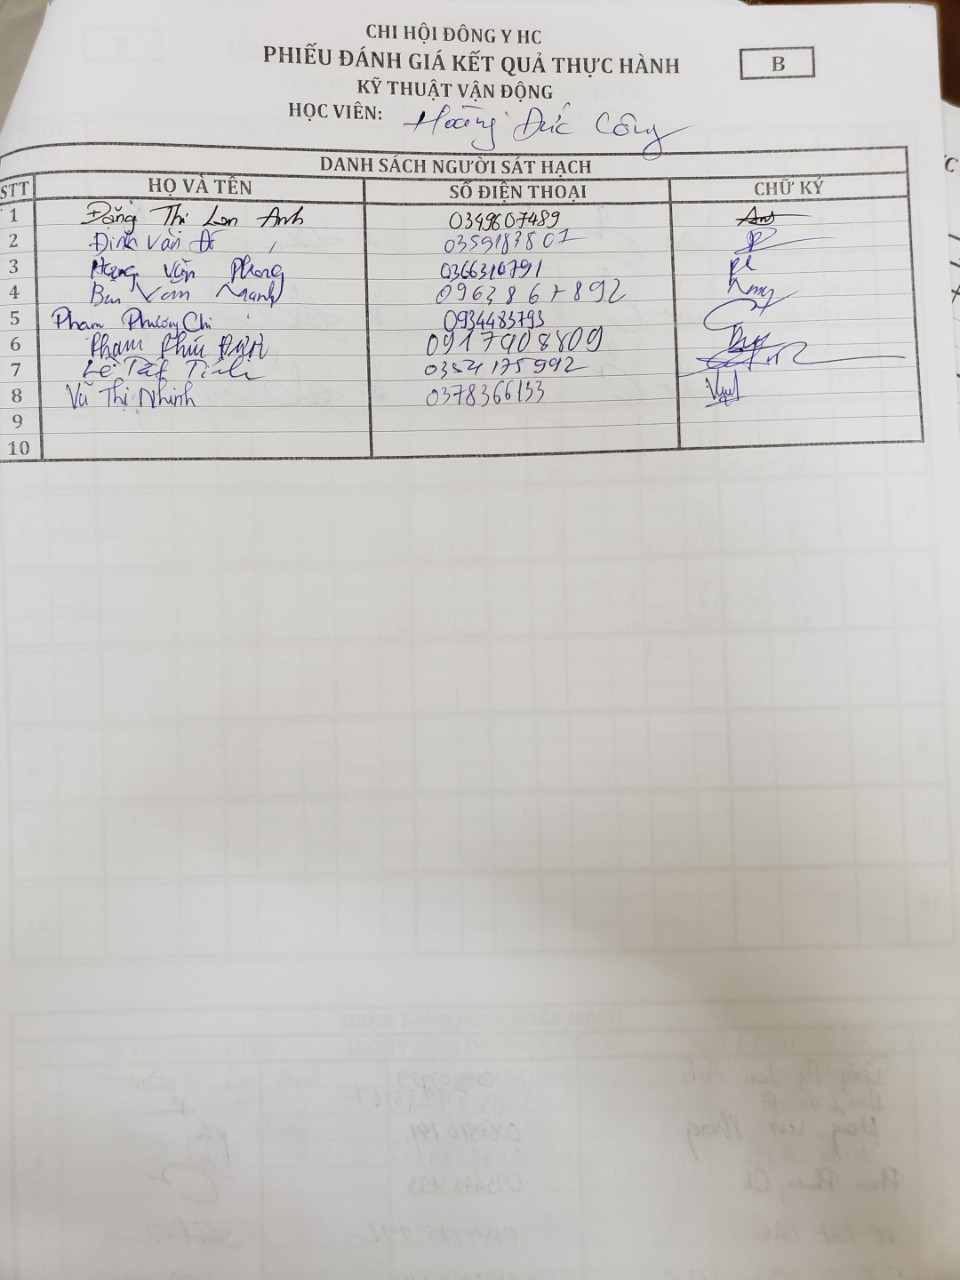 CHI HỘI ĐÔNG Y HC
PHIẾU ĐÁNH GIÁ KẾT QUẢ THỰC HÀNH
B
KỸ THUẬT VẬN ĐỘNG
HỌC VIÊN: Hoàng Đức Công
DANH SÁCH NGƯỜI SÁT HẠCH
STT HỌ VÀ TÊN SỐ ĐIỆN THOẠI CHỮ KÝ
1 Đặng Thị Lan Anh 0349607489
2 Đinh Văn 0359187807
3 Hoàng Văn Phong 0366310791
4 Văn Mạnh 0963867892
5 Phạm Phương Chi 0934483793
6 Phạm Phú 0917908809
7 Lê Tất Tính 0354175992
8 Vũ Thị Nhinh 0378366133
9
10